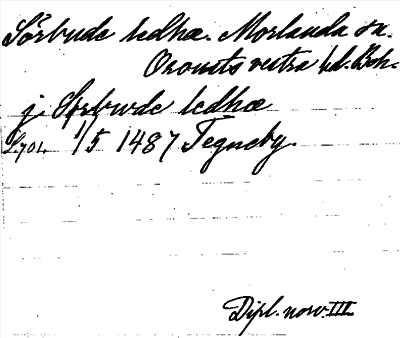 Sörbude ledhæ. Morlanda sn.
Orousts vestra hd. Boh.
j Sørbwde ledhæ
S. 701. 1/5 1487 Tegneby.
Dipl. norv. III